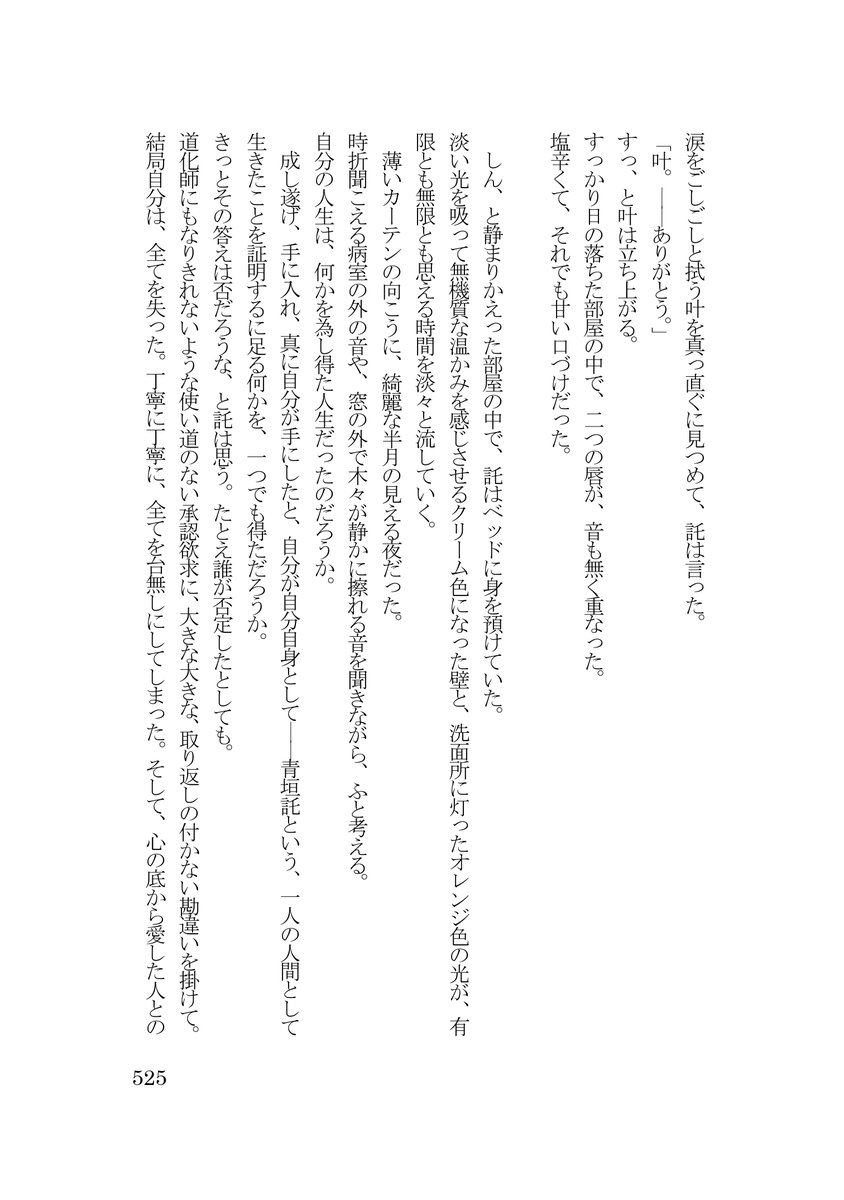 涙をごしごしと拭う叶を真っ直ぐに見つめて、託は言った。
「叶。――ありがとう。」
すっ、と叶は立ち上がる。
すっかり日の落ちた部屋の中で、二つの唇が、音も無く重なった。
塩辛くて、それでも甘い口づけだった。
しん、と静まりかえった部屋の中で、託はベッドに身を預けていた。
淡い光を吸って無機質な温かみを感じさせるクリーム色になった壁と、洗面所に灯ったオレンジ色の光が、有
限とも無限とも思える時間を淡々と流していく。
薄いカーテンの向こうに、綺麗な半月の見える夜だった。
時折聞こえる病室の外の音や、窓の外で木々が静かに擦れる音を聞きながら、ふと考える。
自分の人生は、何かを為し得た人生だったのだろうか。
成し遂げ、手に入れ、真に自分が手にしたと、自分が自分自身として――青垣託という、一人の人間として
生きたことを証明するに足る何かを、一つでも得ただろうか。
きっとその答えは否だろうな、と託は思う。たとえ誰が否定したとしても。
道化師にもなりきれないような使い道のない承認欲求に、大きな大きな、取り返しの付かない勘違いを掛けて。
結局自分は、全てを失った。丁寧に丁寧に、全てを台無しにしてしまった。そして、心の底から愛した人との
525